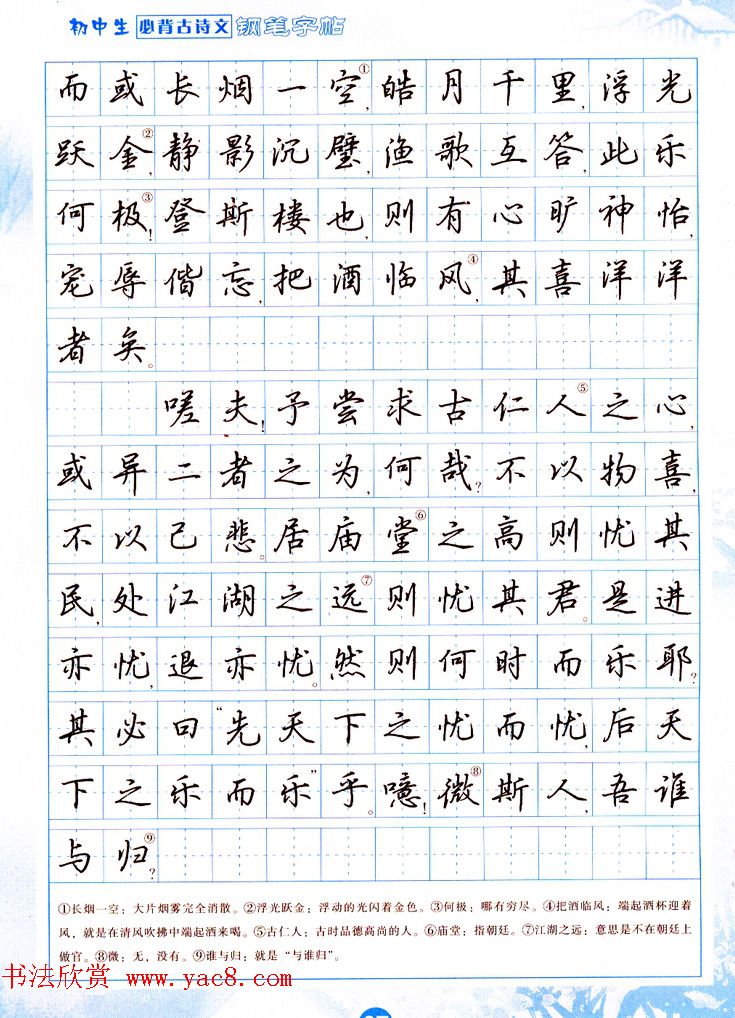 初中生 必背古诗文 钢笔字帖
而或长烟一空①,皓月千里,浮光
跃金②,静影沉璧,渔歌互答,此乐
何极③!登斯楼也,则有心旷神怡,
宠辱偕忘,把酒临风④,其喜洋洋
者矣。
嗟夫!予尝求古仁人⑤之心,
或异二者之为,何哉?不以物喜,
不以己悲。居庙堂⑥之高则忧其
民,处江湖之远⑦则忧其君。是进
亦忧,退亦忧。然则何时而乐耶?
其必曰“先天下之忧而忧,后天
下之乐而乐”乎。噫!微⑧斯人,吾谁
与归⑨?
①长烟一空:大片烟雾完全消散。②浮光跃金:浮动的光闪着金色。③何极:哪有穷尽。④把酒临风:端起酒杯迎着
风,就是在清风吹拂中端起酒来喝。⑤古仁人:古时品德高尚的人。⑥庙堂:指朝廷。⑦江湖之远:意思是不在朝廷上
做官。⑧微:无,没有。⑨谁与归:就是“与谁归”。
书法欣赏 www.yac8.com